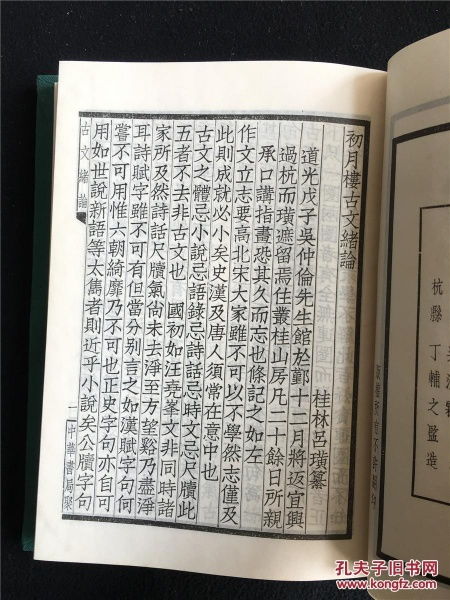 初月樓古文緒論
桂林呂璜纂
道光戊子吳仲倫先生館於鄞十二月將返宜興
過杭而璜遮留焉住叢桂山房凡二十餘日所親
承口講指畫恐其久而忘也條記之如左
作文立志要高北宋大家雖不可以不學然志僅及
此則成就必小矣史漢及唐人須常在意中也
古文之體忌小說忌語錄忌詩話忌時文忌尺牘此
五者不去非古文也　國初如汪堯峯文非同時諸
家所及然詩話尺牘氣尙未去淨至方望谿乃盡淨
耳詩賦字雖不可有但當分別言之如漢賦字句何
嘗不可用惟六朝綺靡乃不可也正史字句亦自可
用如世說新語等太雋者則近乎小說矣公牘字句
古文緒論
一
中華書局聚
杭縣　丁輔之監造
孔夫子旧书网